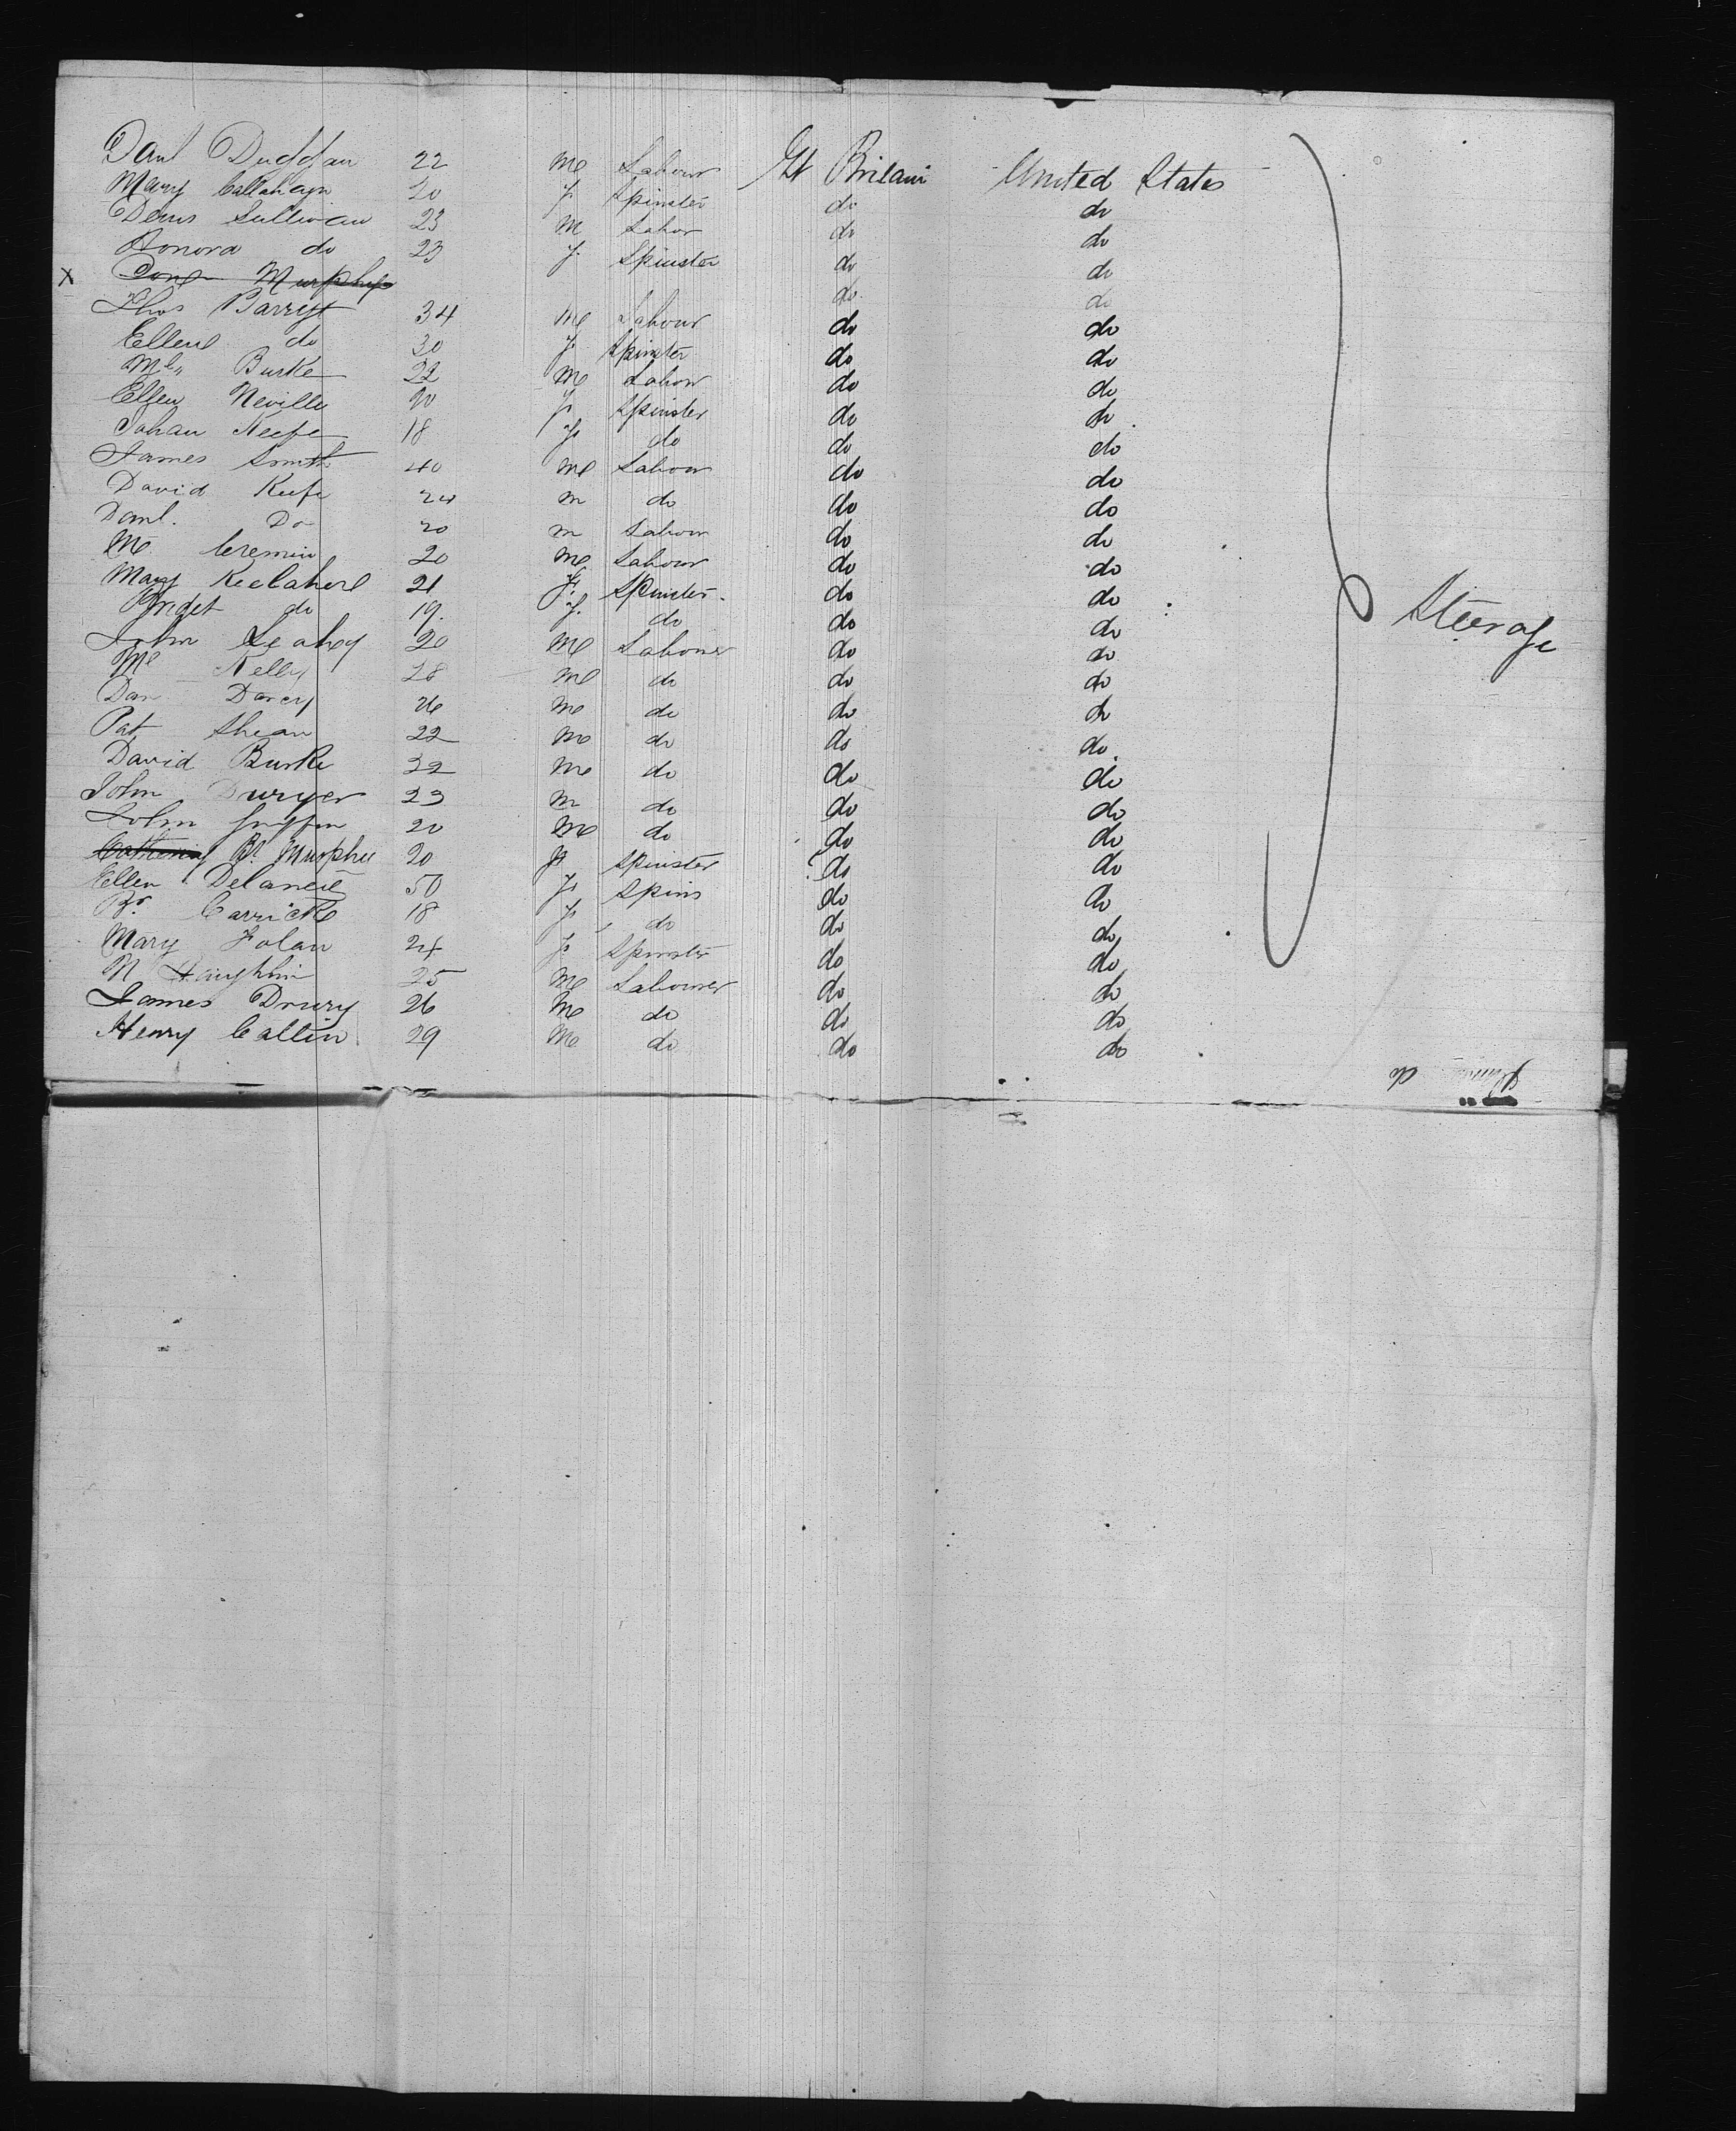 Danl Duggan 22 m Labour Gt Britain United States
Mary Callahan 20 f Spinster do do
Denis Sullivan 23 m Labor do do
Honora do 23 f. Spinster do do
X Murphy do do
Thos Barry 34 m Labour do do
Ellen do 30 f Spinster do do
Ml. Burke 22 m Labour do do
Ellen Neville 20 f Spinster do do
Johan Keefe 18 f do do do
James Smith 40 m Labour do do
David Keefe 24 m do do do
Danl. Do 20 m Labour do do
M. Cremin 20 m Labour do do
Mary Keelaher 21 f. Spinster do do
Bridget do 19. f. do do do
John Leahy 20 m Labourer do do
Ml Kelly 28 m do do do
Dan Darcy 26 m do do do
Pat Shean 22 m do do do
David Burke 22 m do do do
John Dwyer 23 m do do do
John Griffin 20 m do do do
Catherine Bt Murphy 20 f Spinster do do
Ellen Delanie 50 f Spins do do
Br. Carrick 18 f do do do
Mary Folan 24 f Spinster do do
N Laughlin 25 m Labourer do do
James Drury 26 m do do do
Henry Callin 29 m do do do
Steerage
do